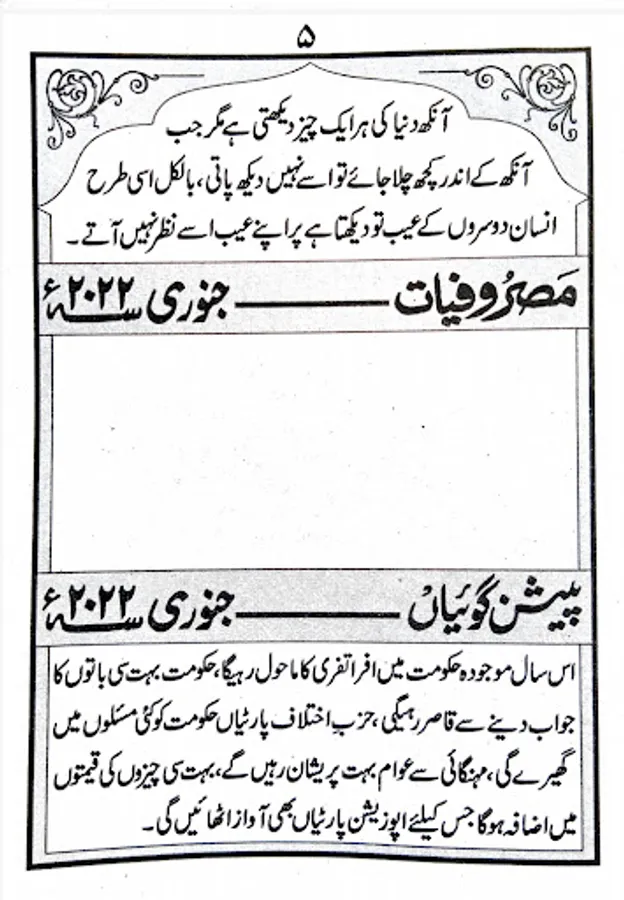 ۵
آنکھ دنیا کی ہر ایک چیز دیکھتی ہے مگر جب
آنکھ کے اندر کچھ چلا جائے تو اسے نہیں دیکھ پاتی، بالکل اسی طرح
انسان دوسروں کے عیب تو دیکھتا ہے پر اپنے عیب اسے نظر نہیں آتے۔
مَصرُوفیات ——— جنوری ۲۰۲۲ء
پیشن گوئیاں ——— جنوری ۲۰۲۲ء
اس سال موجودہ حکومت میں افراتفری کا ماحول رہیگا، حکومت بہت سی باتوں کا
جواب دینے سے قاصر رہیگی، حزبِ اختلاف پارٹیاں حکومت کو کئی مسئلوں میں
گھیرے گی، مہنگائی سے عوام بہت پریشان رہیں گے، بہت سی چیزوں کی قیمتوں
میں اضافہ ہوگا جس کیلئے اپوزیشن پارٹیاں بھی آواز اٹھائیں گی۔